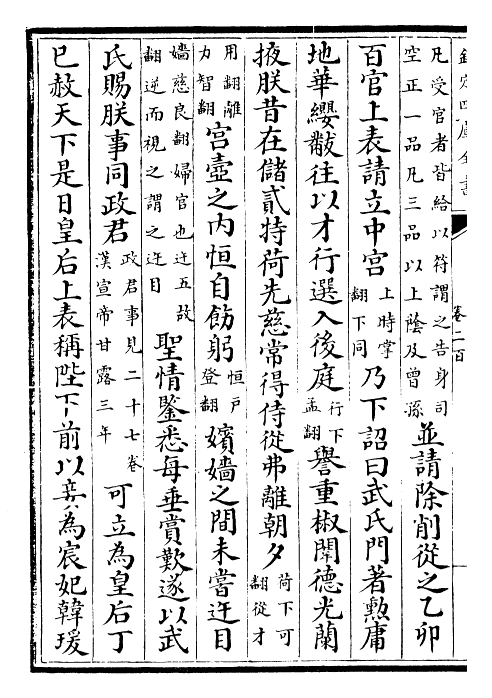 欽定四庫全書
卷二百
凡受官者皆給以符謂之告身司
空正一品凡三品以上蔭及曾孫
並請除削從之乙卯
百官上表請立中宮
上時掌
翻下同
乃下詔曰武氏門著勲庸
地華纓黻往以才行選入後庭
行下
孟翻
譽重椒闈德光蘭
掖朕昔在儲貳特荷先慈常得侍從弗離朝夕
荷下可
翻從才
用翻離
力智翻
宮壼之内恒自飭躬
恒户
登翻
嬪嬙之間未嘗迕目
嬙慈良翻婦官也迕五故
翻逆而視之謂之迕目
聖情鑒悉每垂賞歎遂以武
氏賜朕事同政君
政君事見二十七卷
漢宣帝甘露三年
可立為皇后丁
巳赦天下是日皇后上表稱陛下前以妾為宸妃韓瑗